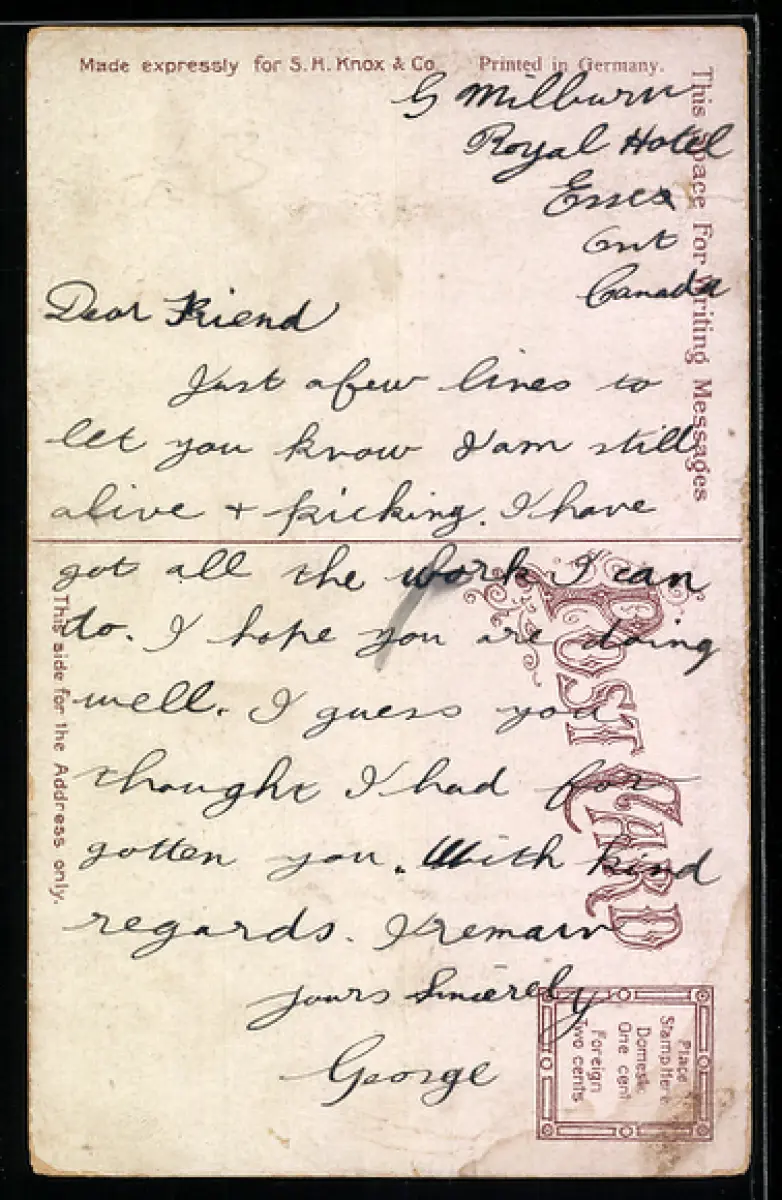 Made expressly for S. H. Knox & Co. Printed in Germany.
G Milburn
Royal Hotel
Essex
Ont
Canada
Dear Friend
Just a few lines to
let you know I am still
alive + kicking. I have
got all the work I can
do. I hope you are doing
well. I guess you
thought I had for
gotten you. With kind
regards. I remain
yours Sincerely
George
This Space For Writing Messages
POST CARD
This side for the Address only.
Place
Stamp Here
Domestic
One cent
Foreign
Two cents